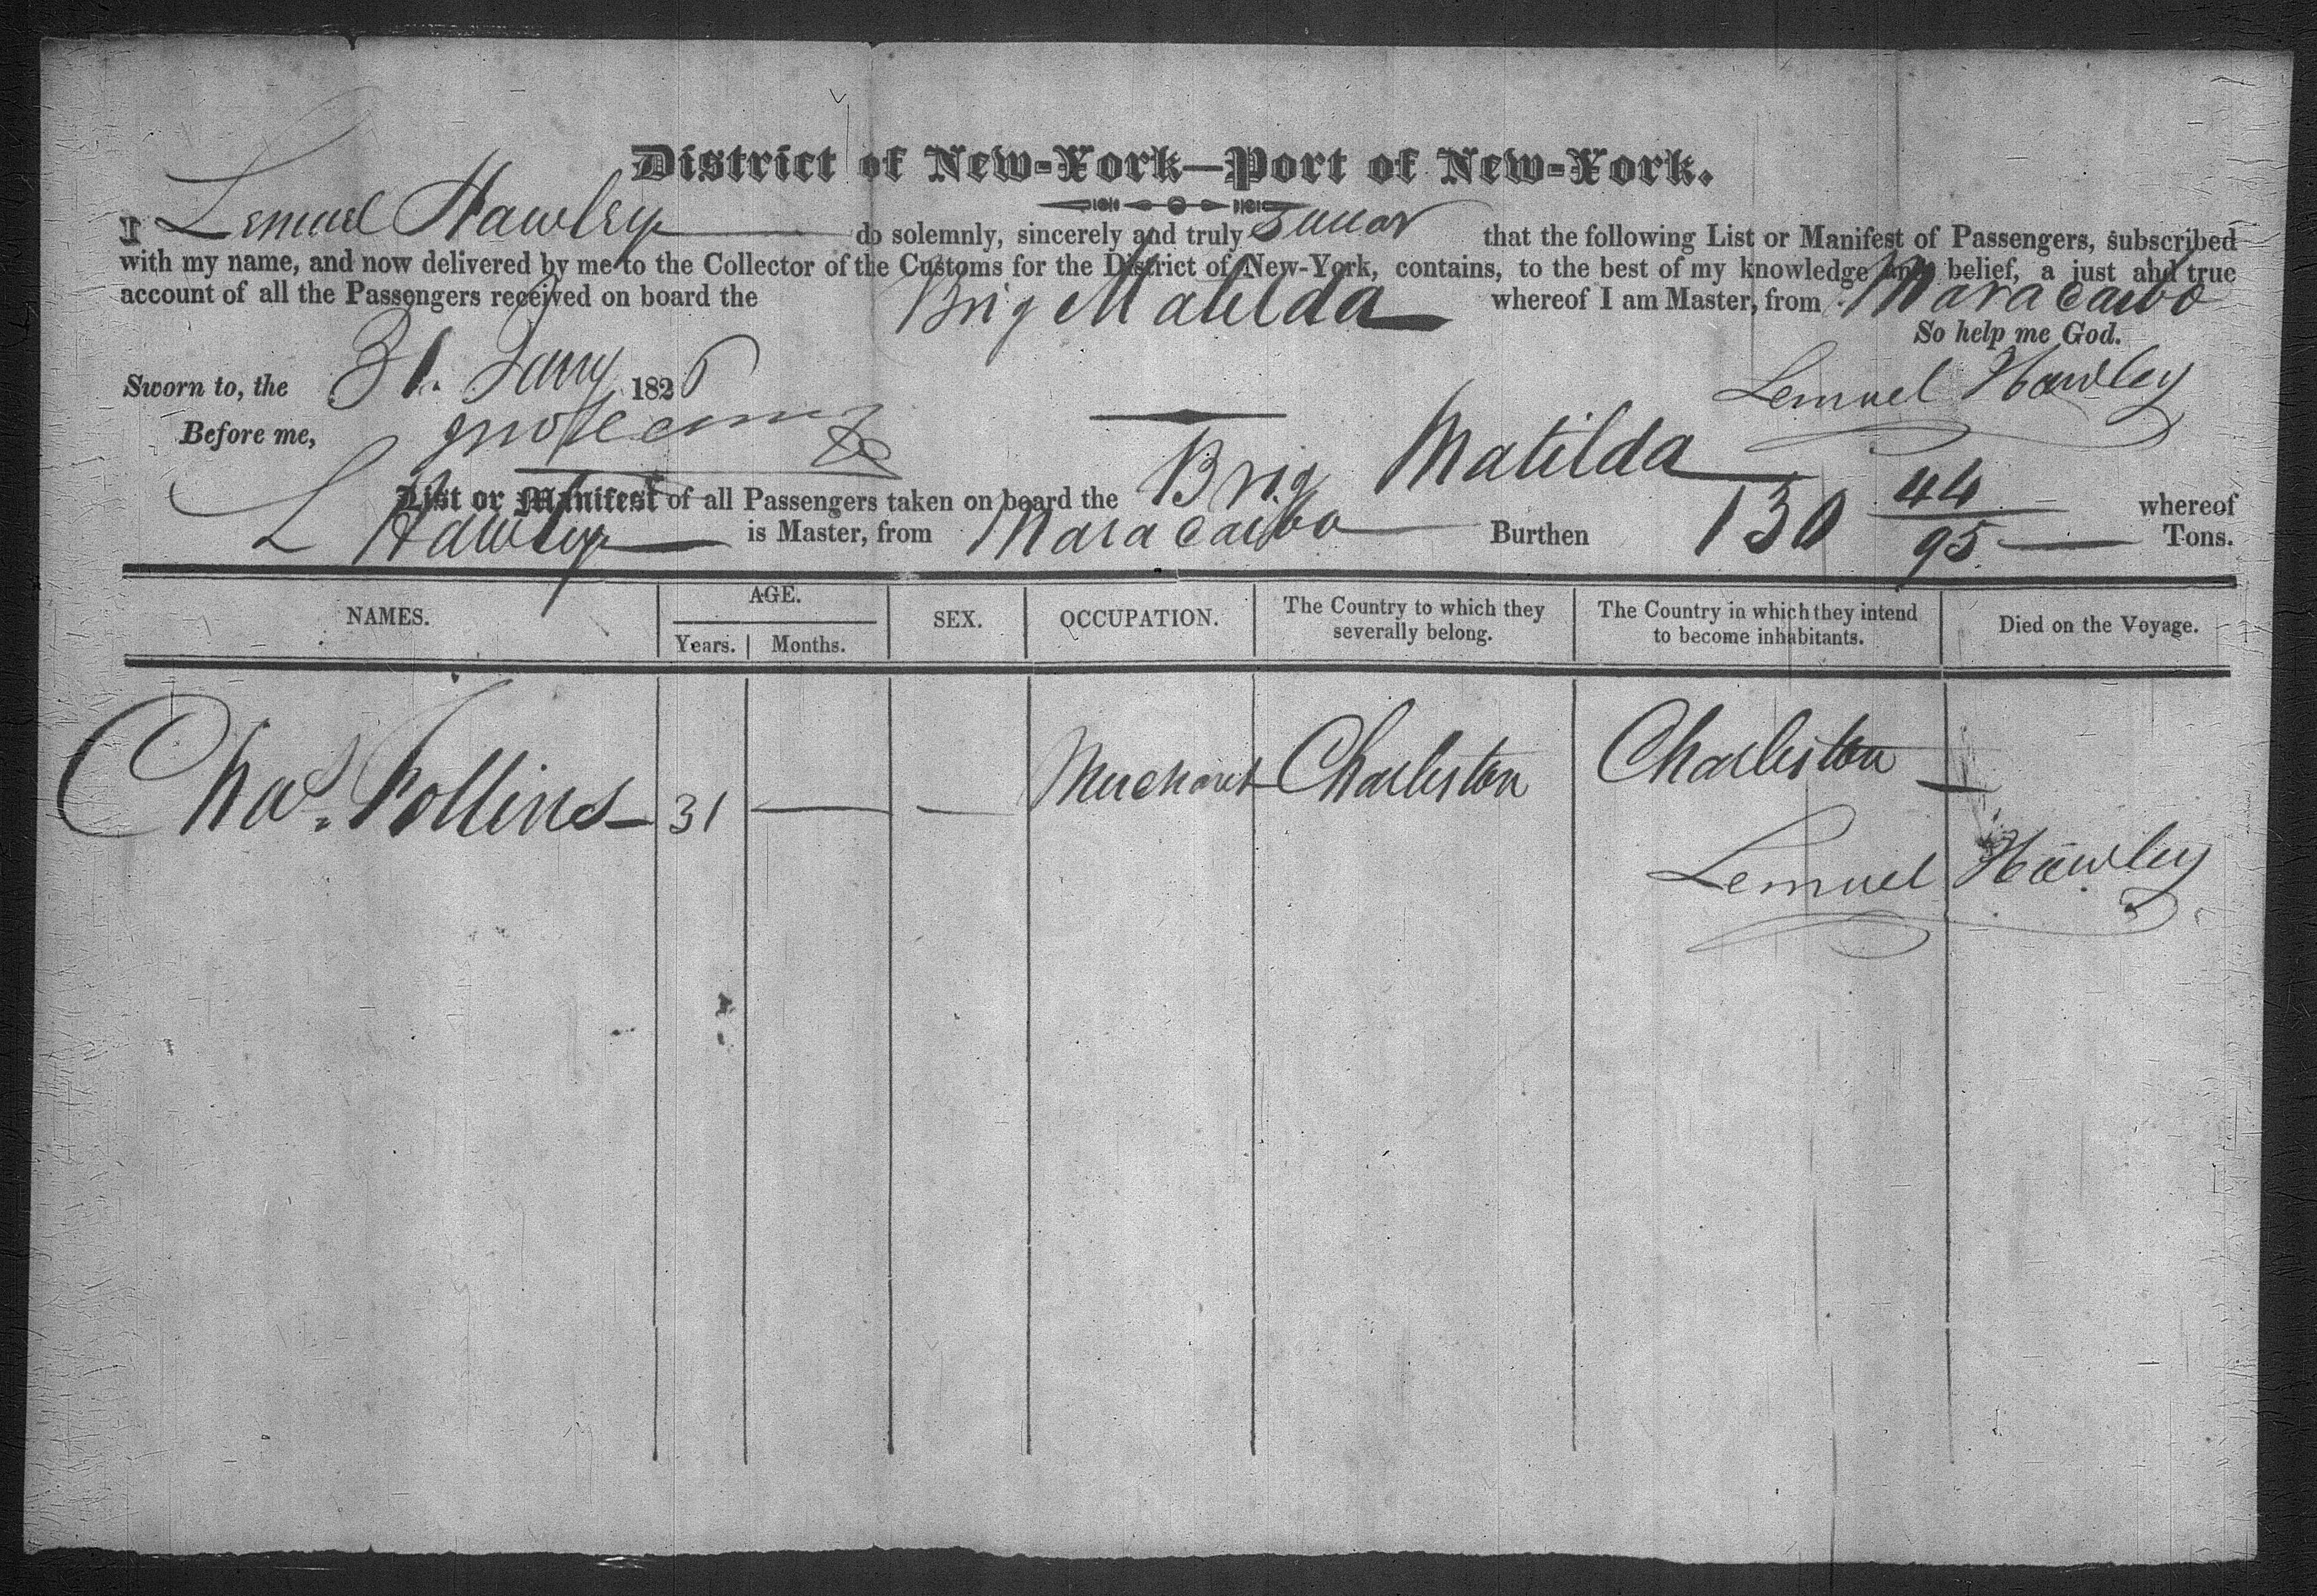 District of New-York—Port of New-York.
I Lemuel Hawley do solemnly, sincerely and truly swear that the following List or Manifest of Passengers, subscribed
with my name, and now delivered by me to the Collector of the Customs for the District of New-York, contains, to the best of my knowledge and belief, a just and true
account of all the Passengers received on board the Brig Matilda whereof I am Master, from Maracaibo
So help me God.
Sworn to, the 31. Jany 1826 Lemuel Hawley
Before me,
List or Manifest of all Passengers taken on board the Brig Matilda whereof
L Hawley is Master, from Maracaibo Burthen 130 44/95 Tons.
NAMES. AGE. SEX. OCCUPATION. The Country to which they severally belong. The Country in which they intend to become inhabitants. Died on the Voyage.
Years. Months.
Chas. Collins 31 — — Merchant Charleston Charleston —
Lemuel Hawley